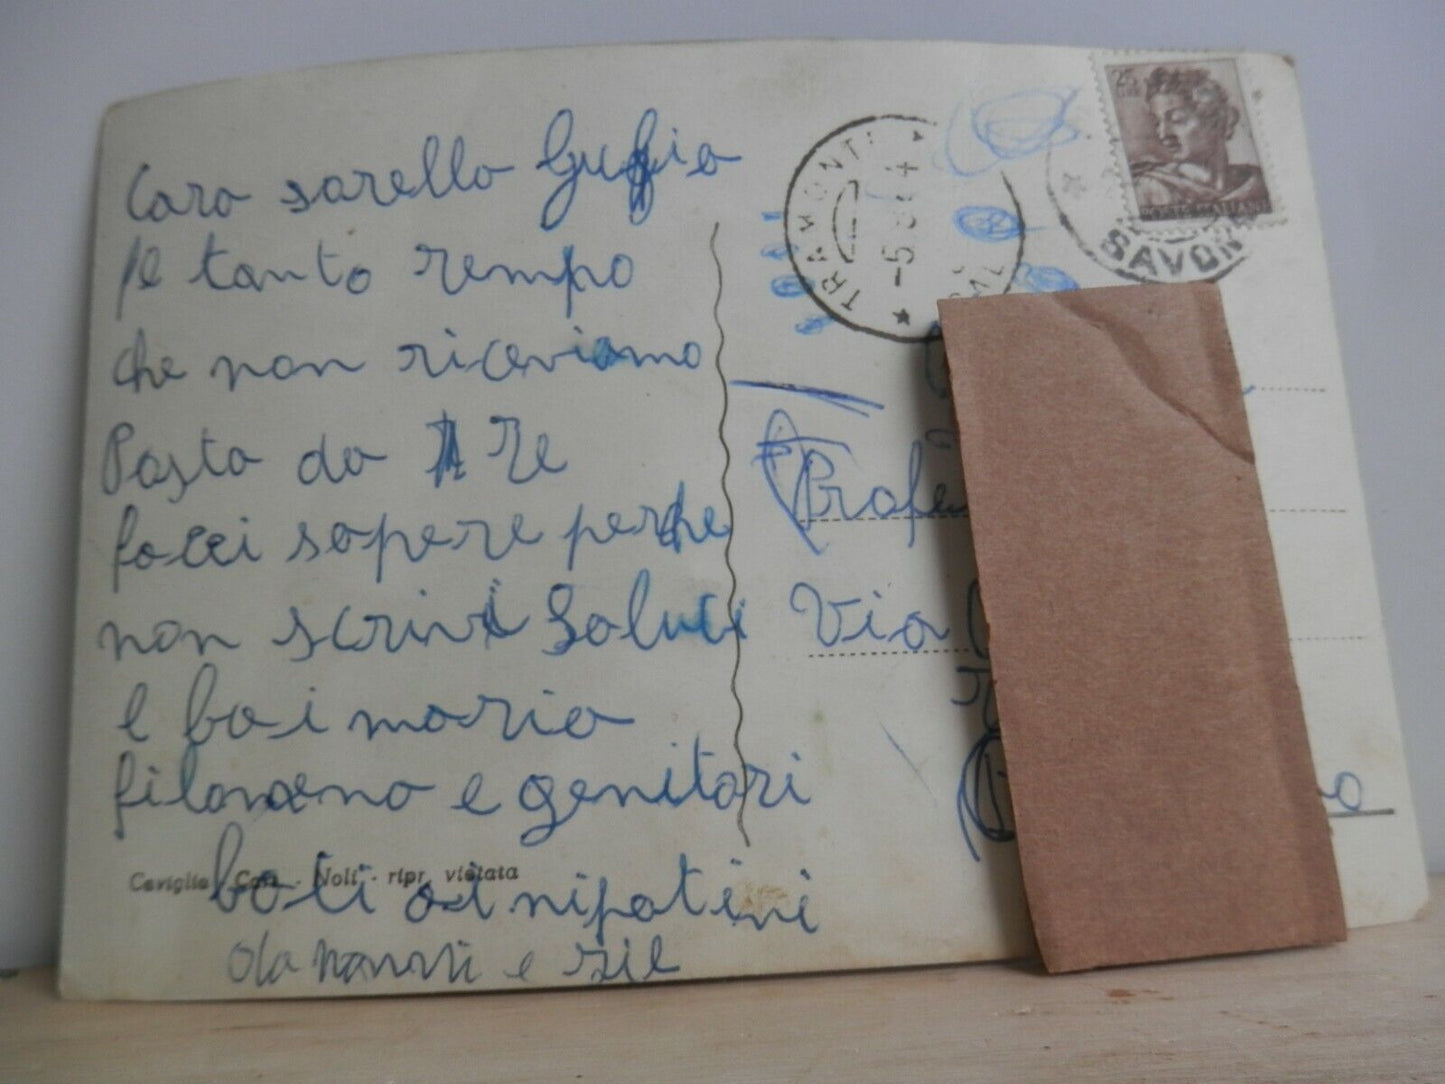 Cara sarella
è tanto rempo
che non riceviamo
Posta da Te
facci sapere perche
non scrivi Saluti
e baci maria
filomena e genitori
bati ai nipatini
da nanni e
Caviglia - Noli - ripr. vietata
TRAMONTI
-5
SAVON
25
POSTE ITALIANE
Via